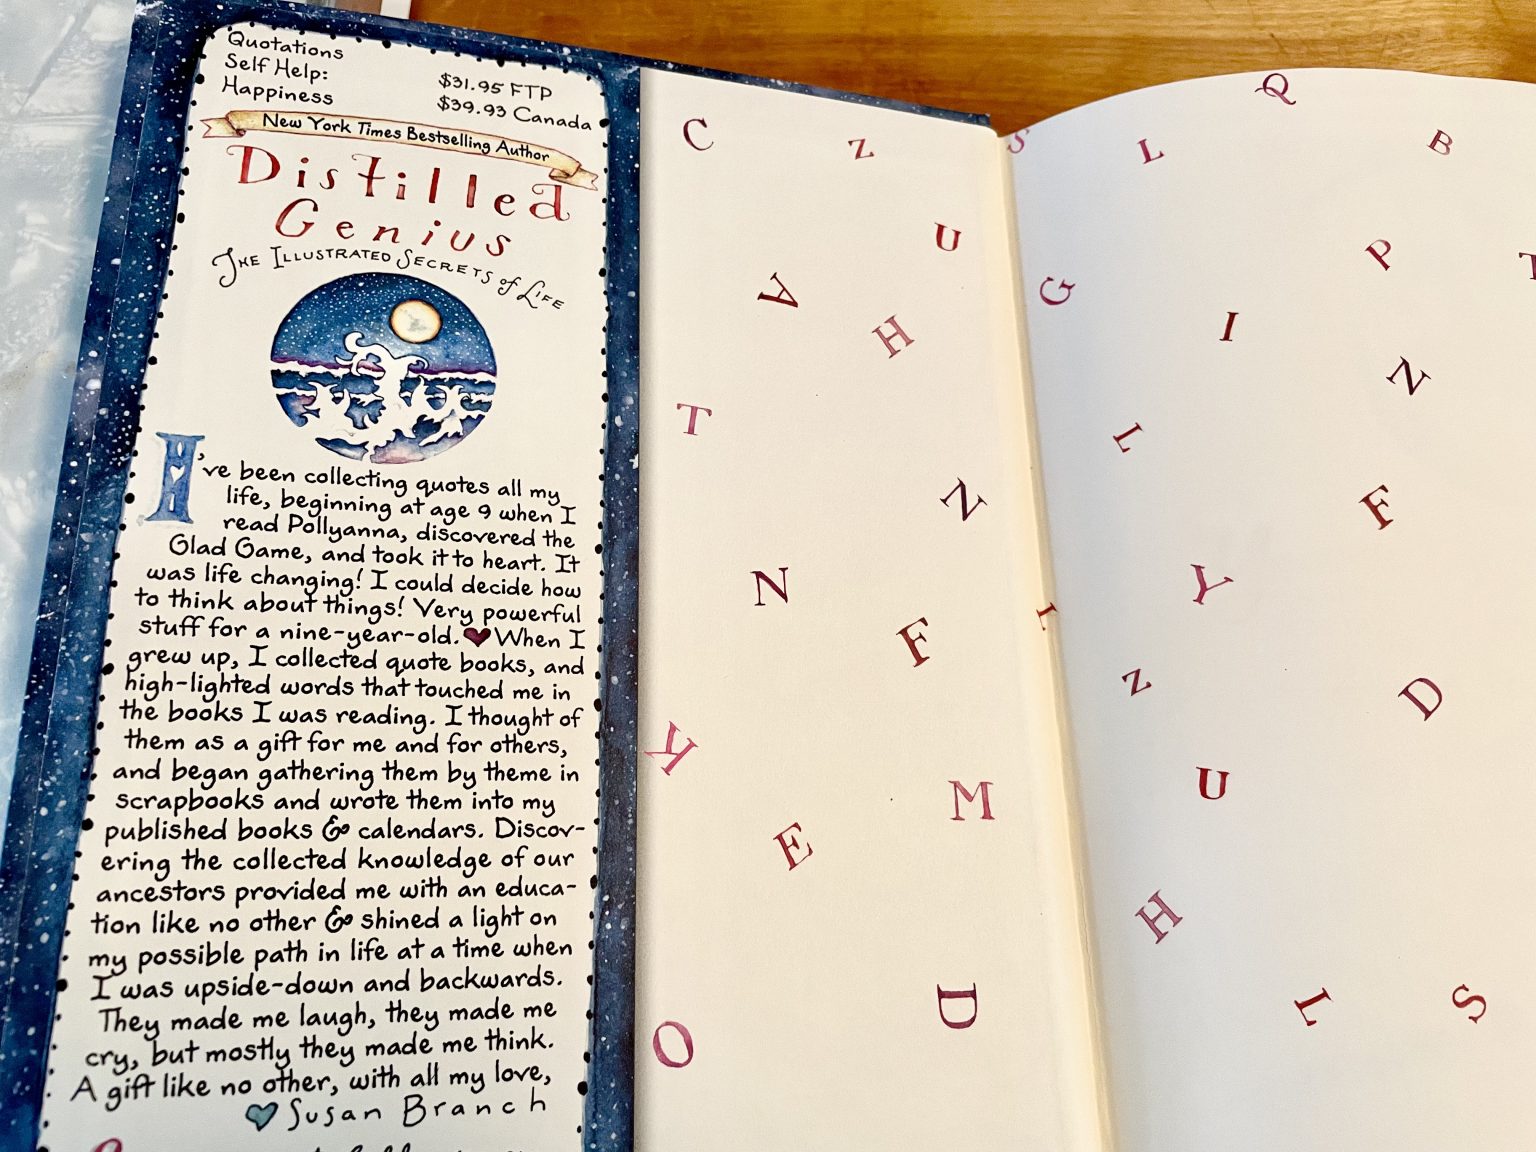 Quotations
Self Help:
Happiness
$31.95 FTP
$39.93 Canada
New York Times Bestselling Author
Distilled
Genius
The Illustrated Secrets of Life
I've been collecting quotes all my
life, beginning at age 9 when I
read Pollyanna, discovered the
Glad Game, and took it to heart. It
was life changing! I could decide how
to think about things! Very powerful
stuff for a nine-year-old. ♥ When I
grew up, I collected quote books, and
high-lighted words that touched me in
the books I was reading. I thought of
them as a gift for me and for others,
and began gathering them by theme in
scrapbooks and wrote them into my
published books & calendars. Discov-
ering the collected knowledge of our
ancestors provided me with an educa-
tion like no other & shined a light on
my possible path in life at a time when
I was upside-down and backwards.
They made me laugh, they made me
cry, but mostly they made me think.
A gift like no other, with all my love,
♥ Susan Branch
C Z
U
A
H
T
N
N
F
K
M
E
D
O
S L Q B
P T
G
I
N
L
F
Y
L
Z D
U
H
L S